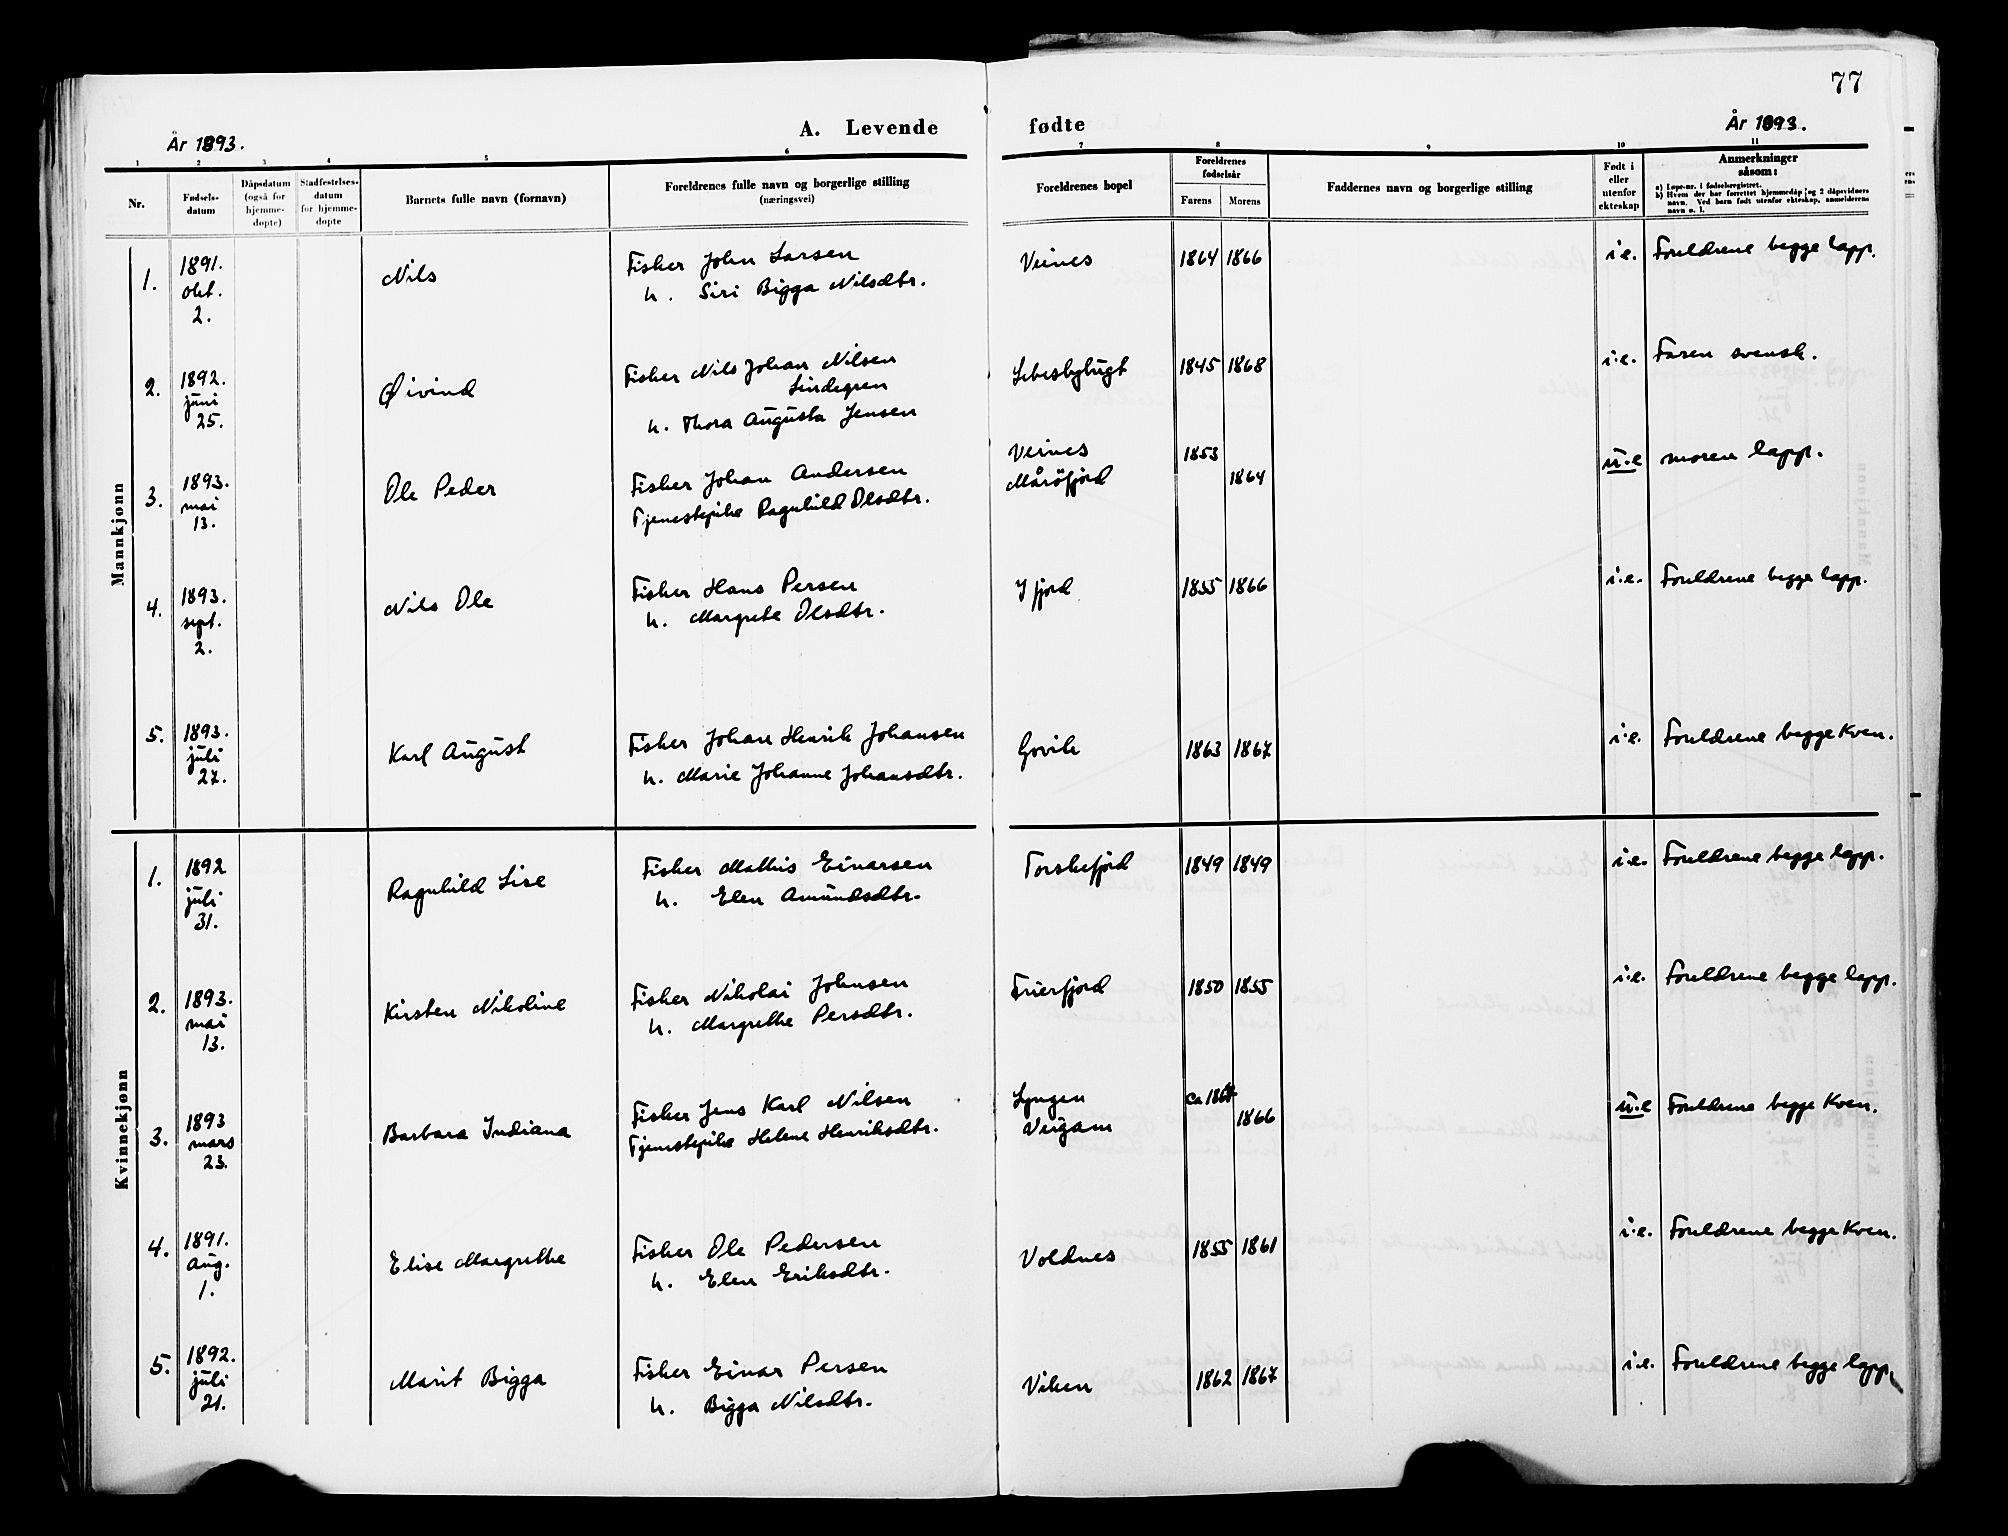 77
År 1893.
A. Levende fødte
År 1893.
1 2 3 4 5 6 7 8 9 10 11
Nr.
Fødsels-
datum
Dåpsdatum
(også for
hjemme-
døpte)
Stadfestelses-
datum
for hjemme-
døpte
Barnets fulle navn (fornavn)
Foreldrenes fulle navn og borgerlige stilling
(næringsvei)
Foreldrenes bopel
Foreldrenes
fødselsår
Farens Morens
Faddernes navn og borgerlige stilling
Født i
eller
utenfor
ekteskap
Anmerkninger
såsom:
a) Løpe-nr. i fødselsregistret.
b) Hvem der har forrettet hjemmedåp og 2 dåpsvidners
navn. Ved barn født utenfor ekteskap, anmelderens
navn o. l.
Mannkjønn
1.
1891.
okt.
2.
Nils
Fisker John Larsen
h. Siri Bigga Nilsdtr.
Veines
1864 1866
i.e.
Foreldrene begge lapp.
2.
1892.
juni
25.
Øivind
Fisker Nils Johan Nilsen
Lindegren
h. Thora Augusta Jensen
Lebesbybugt
1845 1868
i.e.
Faren svensk.
3.
1893.
mai
13.
Ole Peder
Fisker Johan Andersen
Tjenestepike Ragnhild Olsdtr.
Veines
Mårøfjord
1853
1864
u.e
moren lapp.
4.
1893.
sept.
2.
Nils Ole
Fisker Hans Persen
h. Margrete Olsdtr.
Ifjord
1855 1866
i.e.
Foreldrene begge lapp.
5.
1893.
juli
27.
Karl August
Fisker Johan Henrik Johansen
h. Marie Johanne Johansdtr.
Govik
1863 1867
i.e.
Foreldrene begge Kven.
Kvinnekjønn
1.
1892
juli
31.
Ragnhild Lise
Fisker Mathis Einarsen
h. Elen Amundsdtr.
Torskefjord
1849 1849
i.e.
Foreldrene begge lapp.
2.
1893.
mai
13.
Kirsten Nikoline
Fisker Nikolai Johnsen
h. Margrethe Persdtr.
Frierfjord
1850 1855
i.e.
Foreldrene begge lapp.
3.
1893
mars
23.
Barbara Indiana
Fisker Jens Karl Nilsen
Tjenestepike Helene Henriksdtr.
Lyngen
Veigam
ca
1866
u.e
Foreldrene begge Kven.
4.
1891.
Aug.
1.
Elise Margrethe
Fisker Ole Pedersen
h. Elen Eriksdtr.
Voldnes
1855 1861
i.e.
Foreldrene begge Kven.
5.
1892.
juli
21.
Marit Bigga
Fisker Einar Persen
h. Bigga Nilsdtr.
Viken
1862 1867
i.e.
Foreldrene begge lapp.